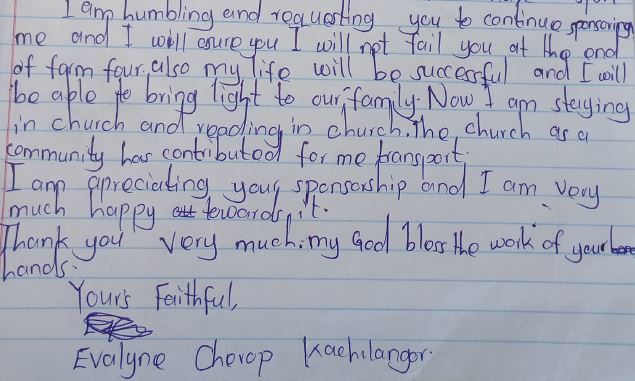 I am humbling and requesting you to continue sponsoring
me and I will asure you I will not fail you at the end
of form four, also my life will be successful and I will
be able to bring light to our family. Now I am staying
in church and reading in church. The church as a
community has contributed for me transport.
I am apreciating your sponsorship and I am very
much happy towards it.
Thank you very much. my God bless the work of your
hands.
Yours Faithful,
Evalyne Cherop Kachilangor.